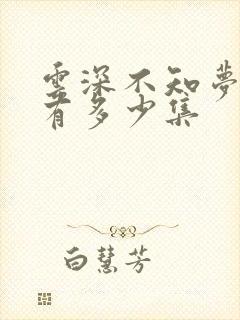 雲深不知夢
有多少集
白慧芳